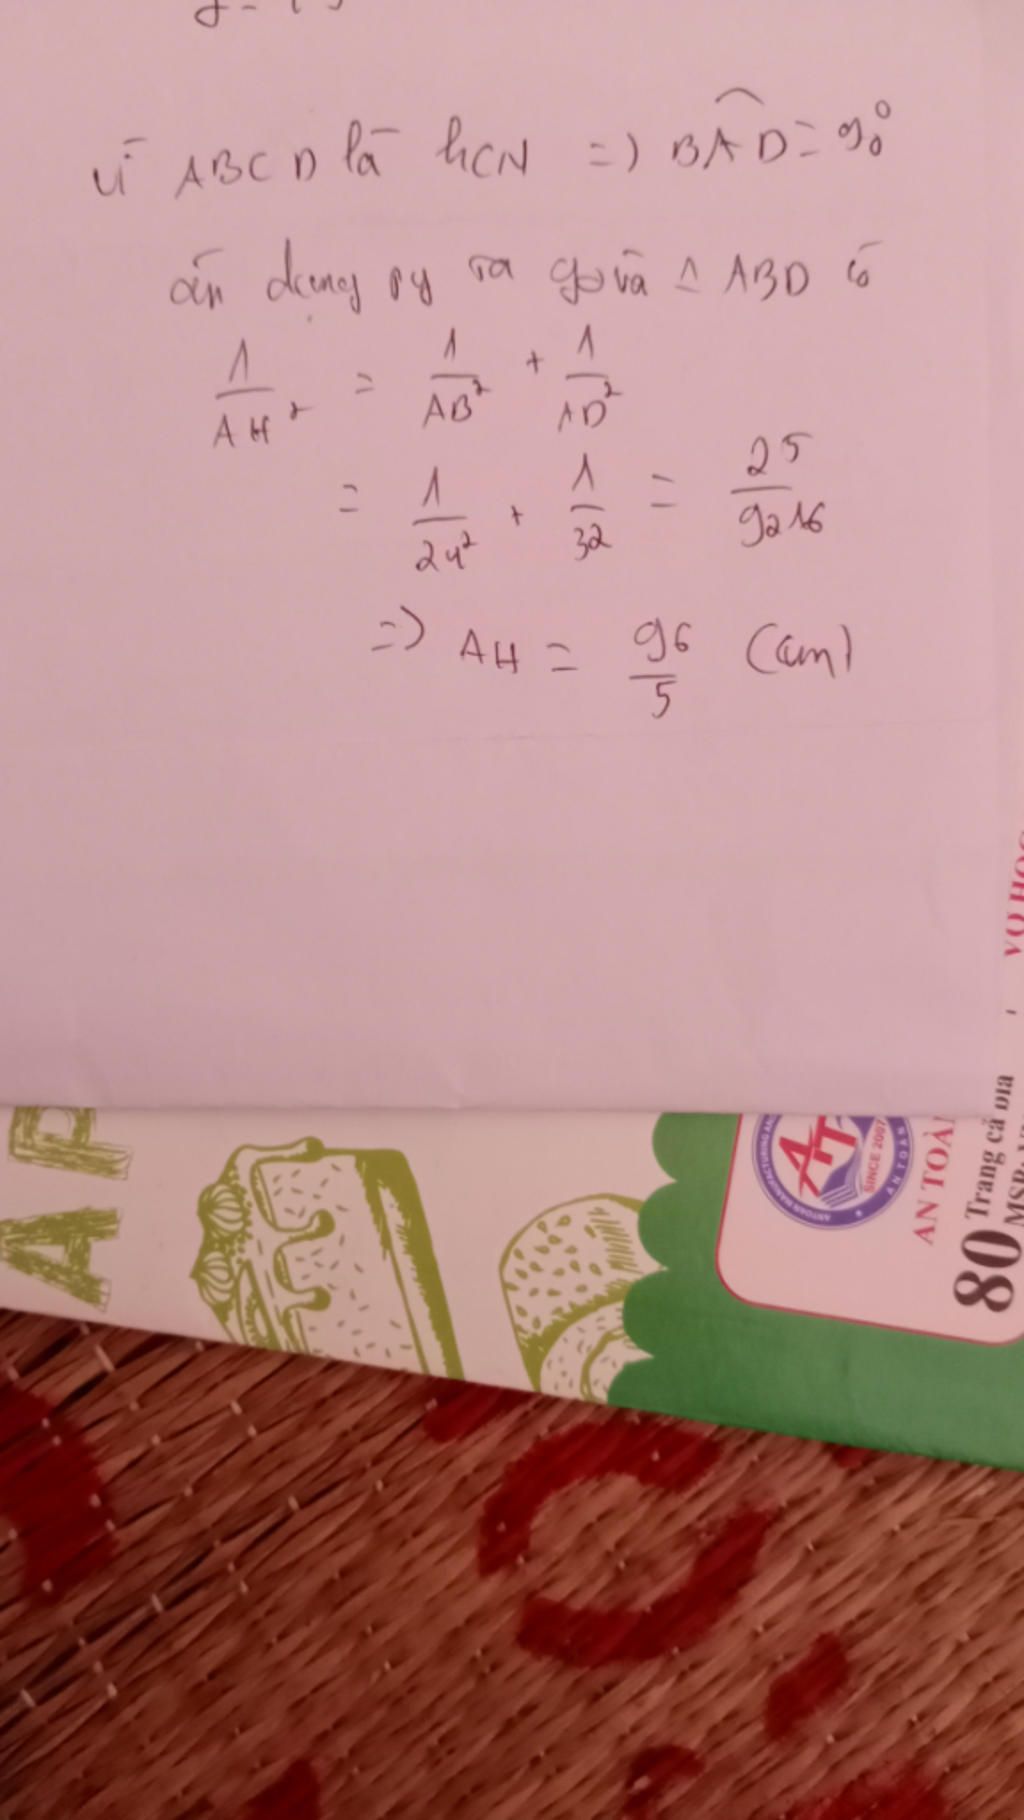 vì ABCD là hCN => BAD = 90°
áp dụng py ta go và Δ ABD có
1/AH² = 1/AB² + 1/AD²
= 1/24² + 1/32 = 25/9216
=> AH = 96/5 (cm)
AP
AT
SINCE 2007
AN TOÀN
AN TOÀ
80 Trang cả bìa
MSP: V
VỞ HỌC